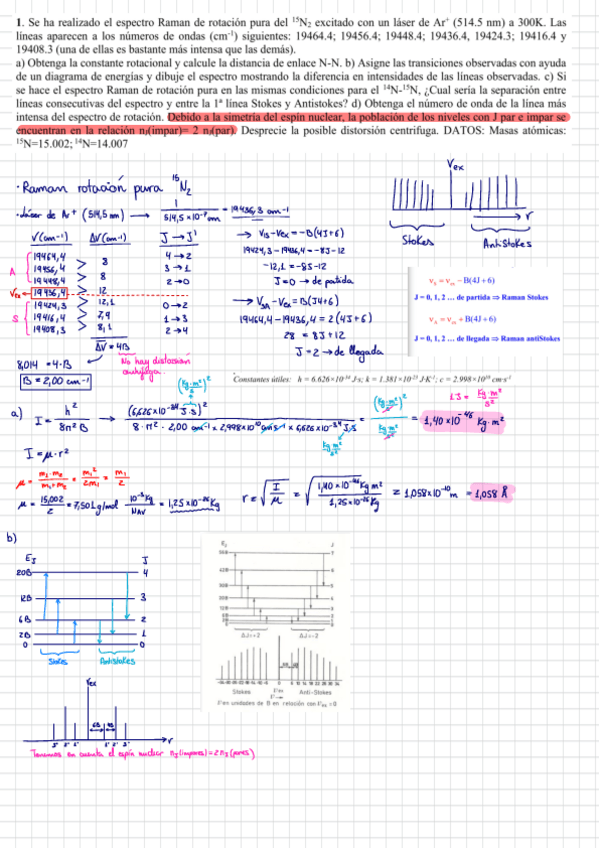 1. Se ha realizado el espectro Raman de rotación pura del ¹⁵N₂ excitado con un láser de Ar⁺ (514.5 nm) a 300K. Las
líneas aparecen a los números de ondas (cm⁻¹) siguientes: 19464.4; 19456.4; 19448.4; 19436.4, 19424.3; 19416.4 y
19408.3 (una de ellas es bastante más intensa que las demás).
a) Obtenga la constante rotacional y calcule la distancia de enlace N-N. b) Asigne las transiciones observadas con ayuda
de un diagrama de energías y dibuje el espectro mostrando la diferencia en intensidades de las líneas observadas. c) Si
se hace el espectro Raman de rotación pura en las mismas condiciones para el ¹⁴N-¹⁵N, ¿Cual sería la separación entre
líneas consecutivas del espectro y entre la 1ª línea Stokes y Antistokes? d) Obtenga el número de onda de la línea más
intensa del espectro de rotación. Debido a la simetría del espín nuclear, la población de los niveles con J par e impar se
encuentran en la relación nⱼ(impar)= 2 nⱼ(par). Desprecie la posible distorsión centrifuga. DATOS: Masas atómicas:
¹⁵N=15.002; ¹⁴N=14.007
· Raman rotación pura ¹⁵N₂
· Láser de Ar⁺ (514,5 nm) → 1 / 514,5×10⁻⁷ cm = 19436,3 cm⁻¹
νex
r
Stokes
AntiStokes
ν(cm⁻¹) Δν(cm⁻¹) J→J'
A
19464,4
8
4→2
19456,4
8
3→1
19448,4
12
2→0
νex ← 19436,4
12,1
S
19424,3
0→2
7,9
19416,4
1→3
8,1
19408,3
2→4
Δν = 4B
→ νS-νex = -B(4J+6)
19424,3 - 19436,4 = -8J-12
-12,1 = -8J-12
J=0 → de partida
→ νSA-νex = B(4J+6)
19464,4 - 19436,4 = 2(4J+6)
28 = 8J+12
J=2 → de llegada
νs = νex − B(4J + 6)
J = 0, 1, 2 ... de partida ⇒ Raman Stokes
νs = νex + B(4J + 6)
J = 0, 1, 2 ... de llegada ⇒ Raman antiStokes
8,014 = 4·B
B = 2,00 cm⁻¹
No hay distorsión
centrífuga.
Constantes útiles: h = 6.626×10⁻³⁴ J·s; k = 1.381×10⁻²³ J·K⁻¹; c = 2.998×10¹⁰ cm·s⁻¹
a) I = h² / 8π²B = (6,626×10⁻³⁴ J·s)² / 8·π²·2,00 cm⁻¹×2,998×10¹⁰ cm·s⁻¹×6,626×10⁻³⁴ J·s = 1,40×10⁻⁴⁶ Kg·m²
1J = Kg·m²/s²
I = μ·r²
μ = m₁·m₂ / m₁+m₂ = m₁² / 2m₁ = m₁ / 2
μ = 15,002 / 2 = 7,501 g/mol · 10⁻³Kg / NAV = 1,25×10⁻²⁶ Kg
r = √(I/μ) = √(1,40×10⁻⁴⁶ Kg m² / 1,25×10⁻²⁶ Kg) = 1,058×10⁻¹⁰ m = 1,058 Å
b)
EJ J
20B 4
12B 3
6B 2
2B 1
0 0
Stokes Antistokes
νex
6B 4B
r
3' 2' 1' 1' 2' 3'
Tenemos en cuenta el espín nuclear nJ(impares)=2nJ(pares)
ΔJ=+2 ΔJ=-2
Stokes Anti-Stokes
ν en unidades de B en relación con νex = 0